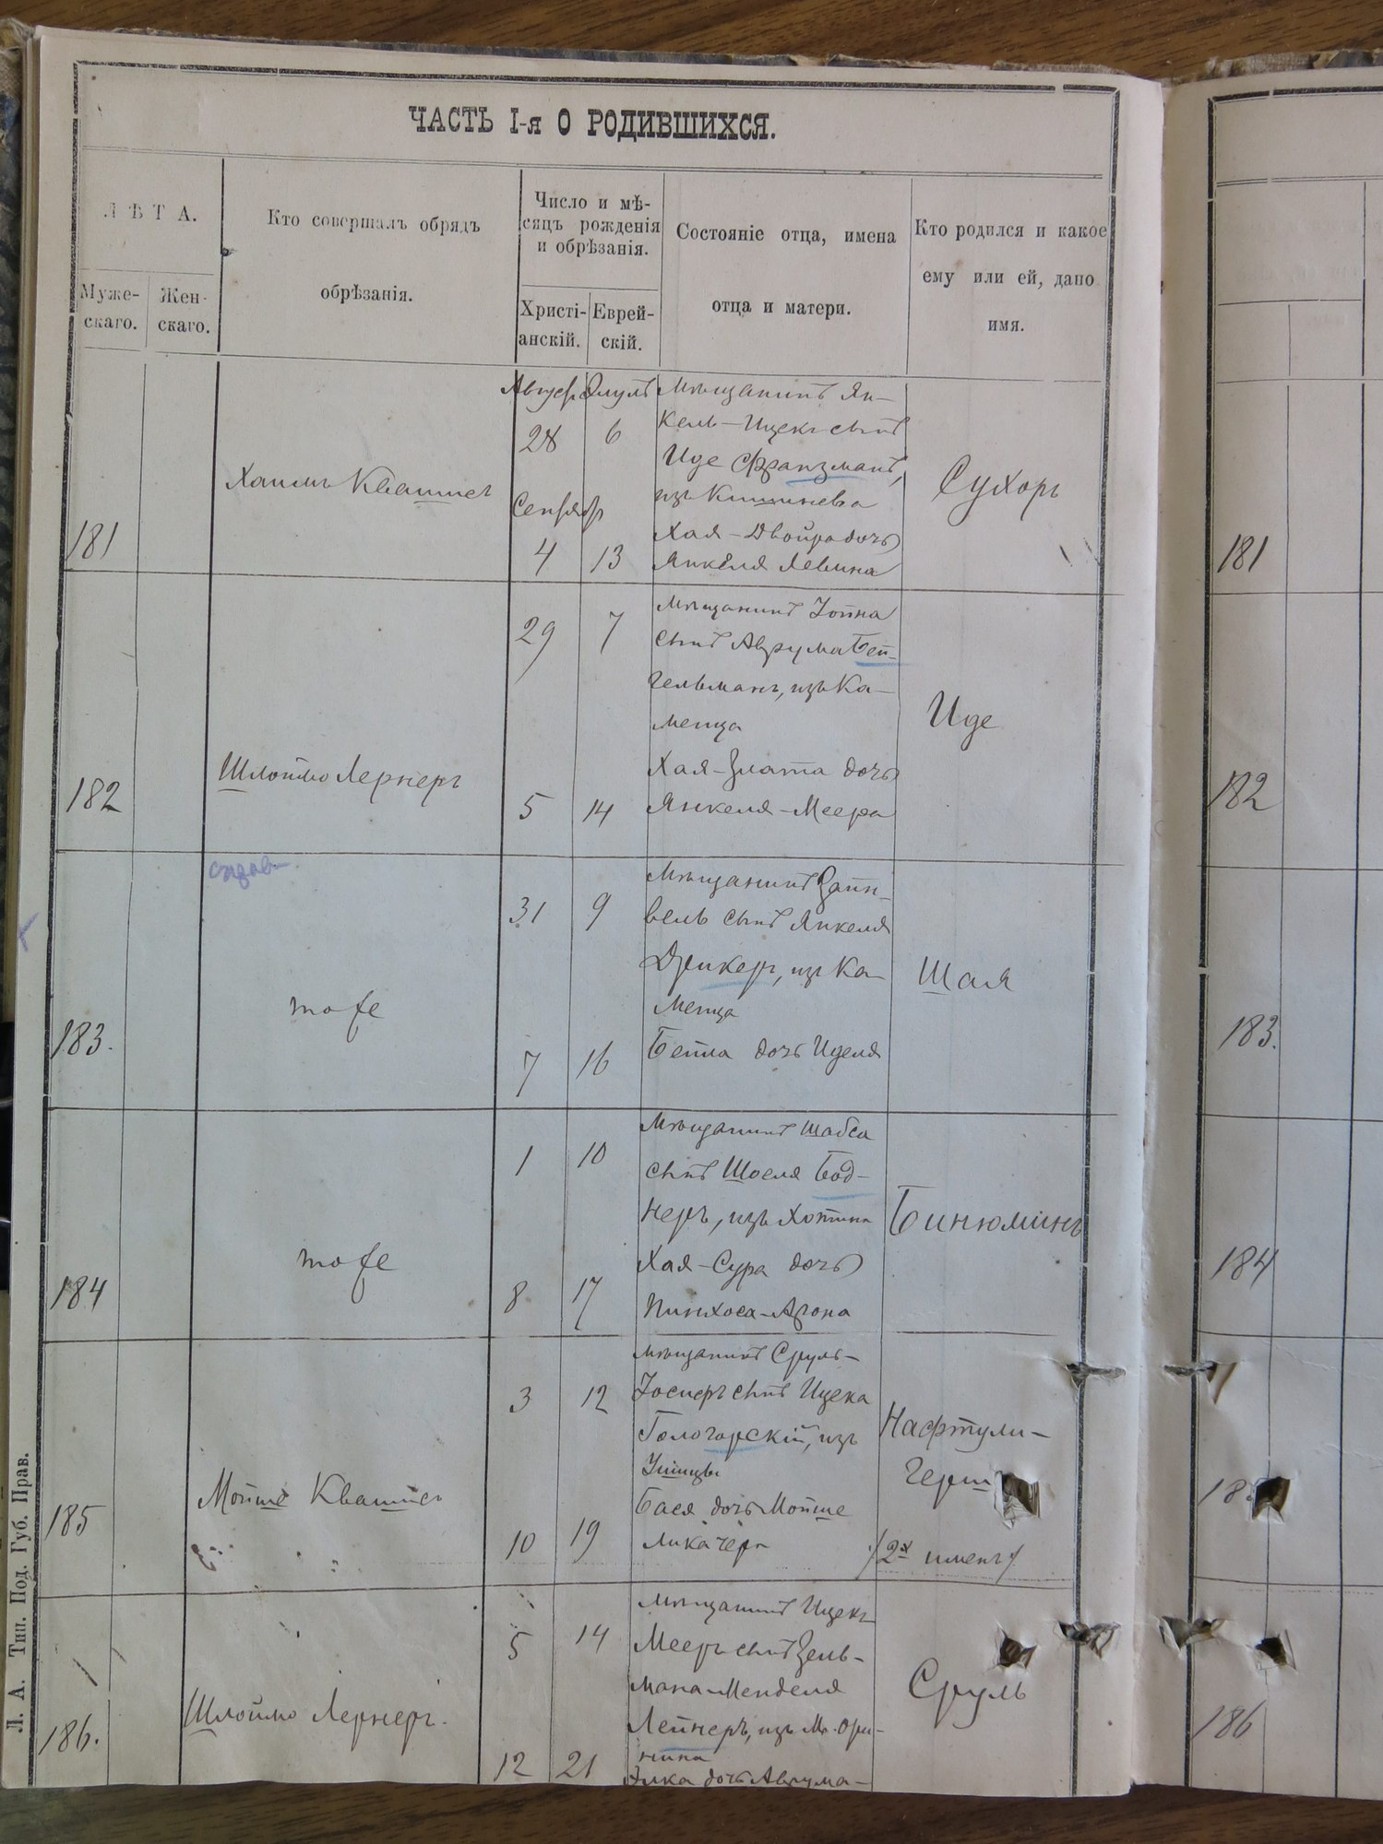 ЧАСТЬ I-я О РОДИВШИХСЯ.
ЛѢТА.
Муже-
скаго.
Жен-
скаго.
Кто совершалъ обрядъ
обрѣзанія.
Число и мѣ-
сяцъ рожденія
и обрѣзанія.
Христі-
анскій.
Еврей-
скій.
Состояніе отца, имена
отца и матери.
Кто родился и какое
ему или ей, дано
имя.
181
Хаимъ Квашнег
28
6
4
13
Мѣщанинъ Ян-
кель-Ицекъ сынъ
Иде Франзманъ,
изъ Кишинева
Хая-Двойра дочь
Янкеля Левина
Сухоръ
181
182
Шлоймо Лернеръ
29
7
5
14
Мѣщанинъ Іойна
сынъ Аврума Бей-
гельманъ, изъ Ка-
менца
Хая-Злата дочь
Янкеля-Меера
Иде
182
183.
справ.
тоже
31
9
7
16
Мѣщанинъ Зайн-
вель сынъ Янкеля
Дрикеръ, изъ Ка-
менца
Бейла дочь Иделя
Шая
183.
184
тоже
1
10
8
17
Мѣщанинъ Шабса
сынъ Шоеля Бод-
неръ, изъ Хотина
Хая-Сура дочь
Пинхоса-Арона
Бинюминъ
184
185
Мойше
3
12
10
19
Мѣщанинъ Сруль-
Іосперъ сынъ Ицека
Гологорскій, изъ
Ушицы
Бася дочь Мойше
Ликачера
Нафтули-
Герш
/2х именъ/
186.
Шлоймо Лернеръ.
5
14
12
21
Мѣщанинъ Ицекъ
Мееръ сынъ Зель-
мана-Менделя
Лейнеръ, изъ М. Ори-
нина
Элка дочь Аврума-
Сруль
186
Л. А. Тип. Под. Губ. Прав.